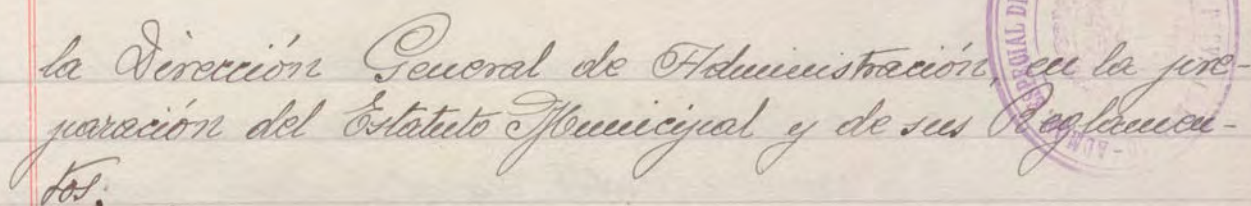 la Dirección General de Administración, en la pre-
paración del Estatuto Municipal y de sus Reglamen-
tos.